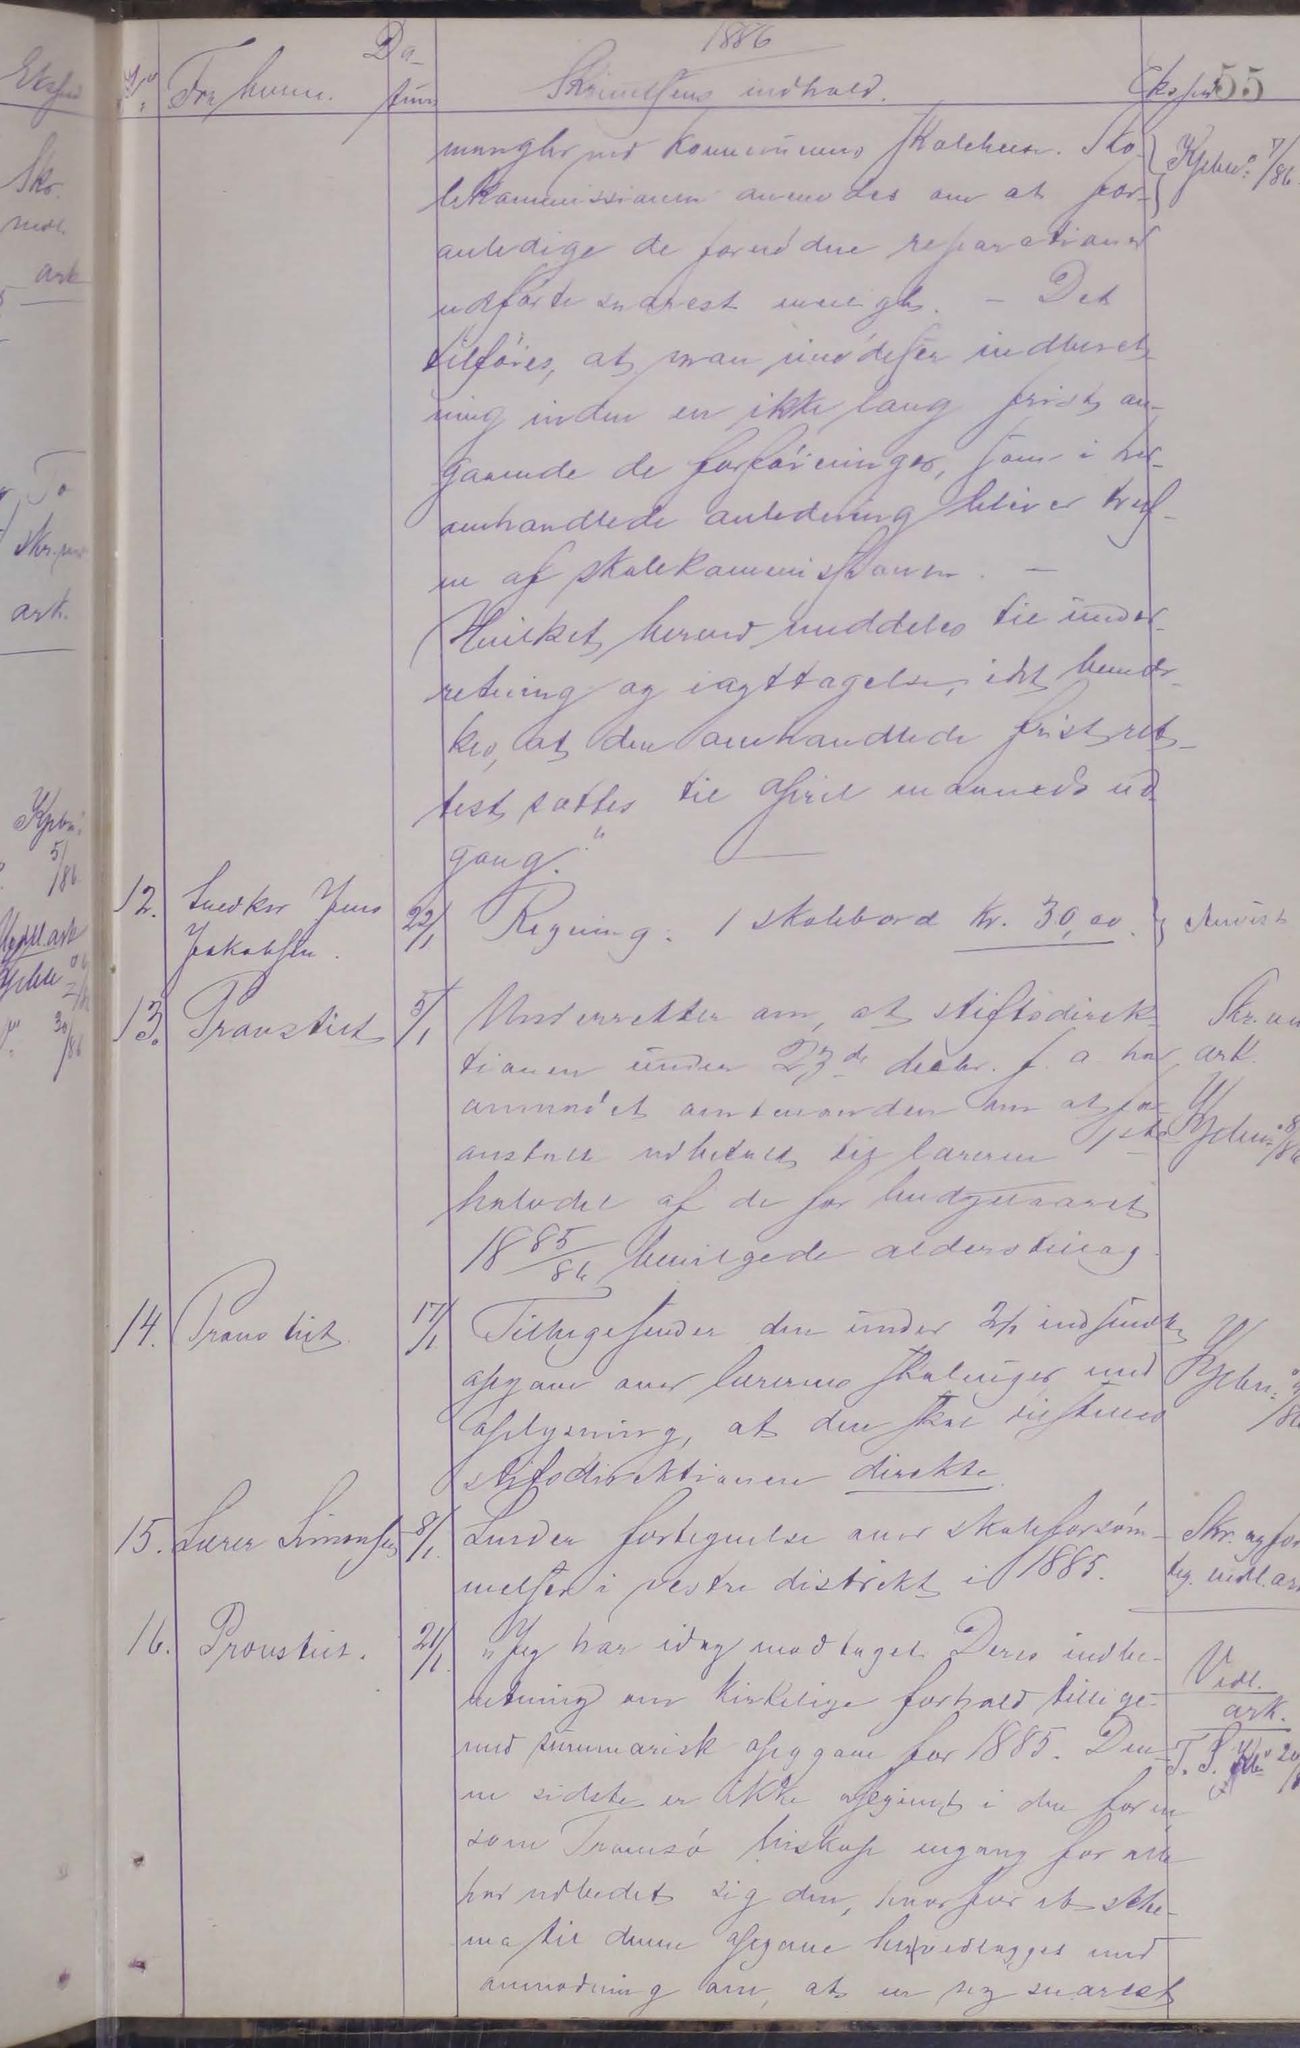 1886
55
No Fra hvem. Datum Skrivelsens indhold. Ekspd.
mangler ved kommunens skolehuse. Sko-
lekommissionen anmodes om at for-
anledige de fornødne reparationer
udførte snarest muligt. — Det
tilføies, at man imødeser indberet-
ning inden en ikke lang frist an-
gaaende de forføininger, som i her-
omhandlede anledning bliver truf-
ne af skolekommissionen. —
Hvilket herved meddeles til under-
retning og iagttagelse, idet bemær-
kes, at den omhandlede frist ret-
test sættes til april maaneds ud-
gang."
Kpbno 7/86
12. Snedker Jens
Jakobsen. 22/1 Regning: 1 skolebord Kr. 30,00. Anvist
13. Provstiet 5/1 Underretter om, at stiftsdirek-
tionen under 23de decbr. f. a. har
anmodet amtmanden om at for-
anstalte udbetalt til læreren 1ste
halvdel af de for budgetaaret
1885/86 bevilgede alderstillæg.
ark.
Kpbno 8/86
14. Provstiet. 17/1 Tilbagesender den under 2/1 indsendte
opgave over lærernes stillinger med
oplysning, at den skal tilstilles
stiftsdirektionen direkte.
15. Lærer Simonsen 8/1 Sender fortegnelse over skoleforsøm-
melser i vestre distrikt i 1885.
Skr. og for
teg. vedl. ark
16. Provstiet. 21/1 "Jeg har idag modtaget Deres indbe-
retning om kirkelige forhold tillige-
med summarisk opgave for 1885. Den-
ne sidste er ikke afgivet i den form,
som Tromsø biskop engang for alle
har udbedet sig den, hvorfor et sche-
ma til denne opgave hervedlægges med
anmodning om, at en ny snarest
Vedl.
ark.